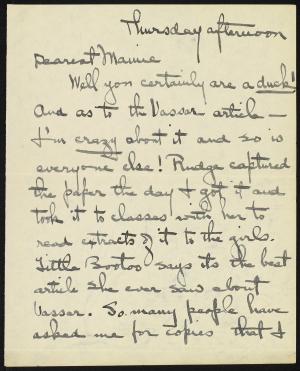 Thursday afternoon
Dearest Mamie
Well you certainly are a duck!
And as to the Vassar article –
I'm crazy about it and so is
everyone else! Rudge captured
the paper the day I got it and
took it to classes with her to
read extracts of it to the girls.
Little Bootoo says its the best
article she ever saw about
Vassar. So many people have
asked me for copies that I